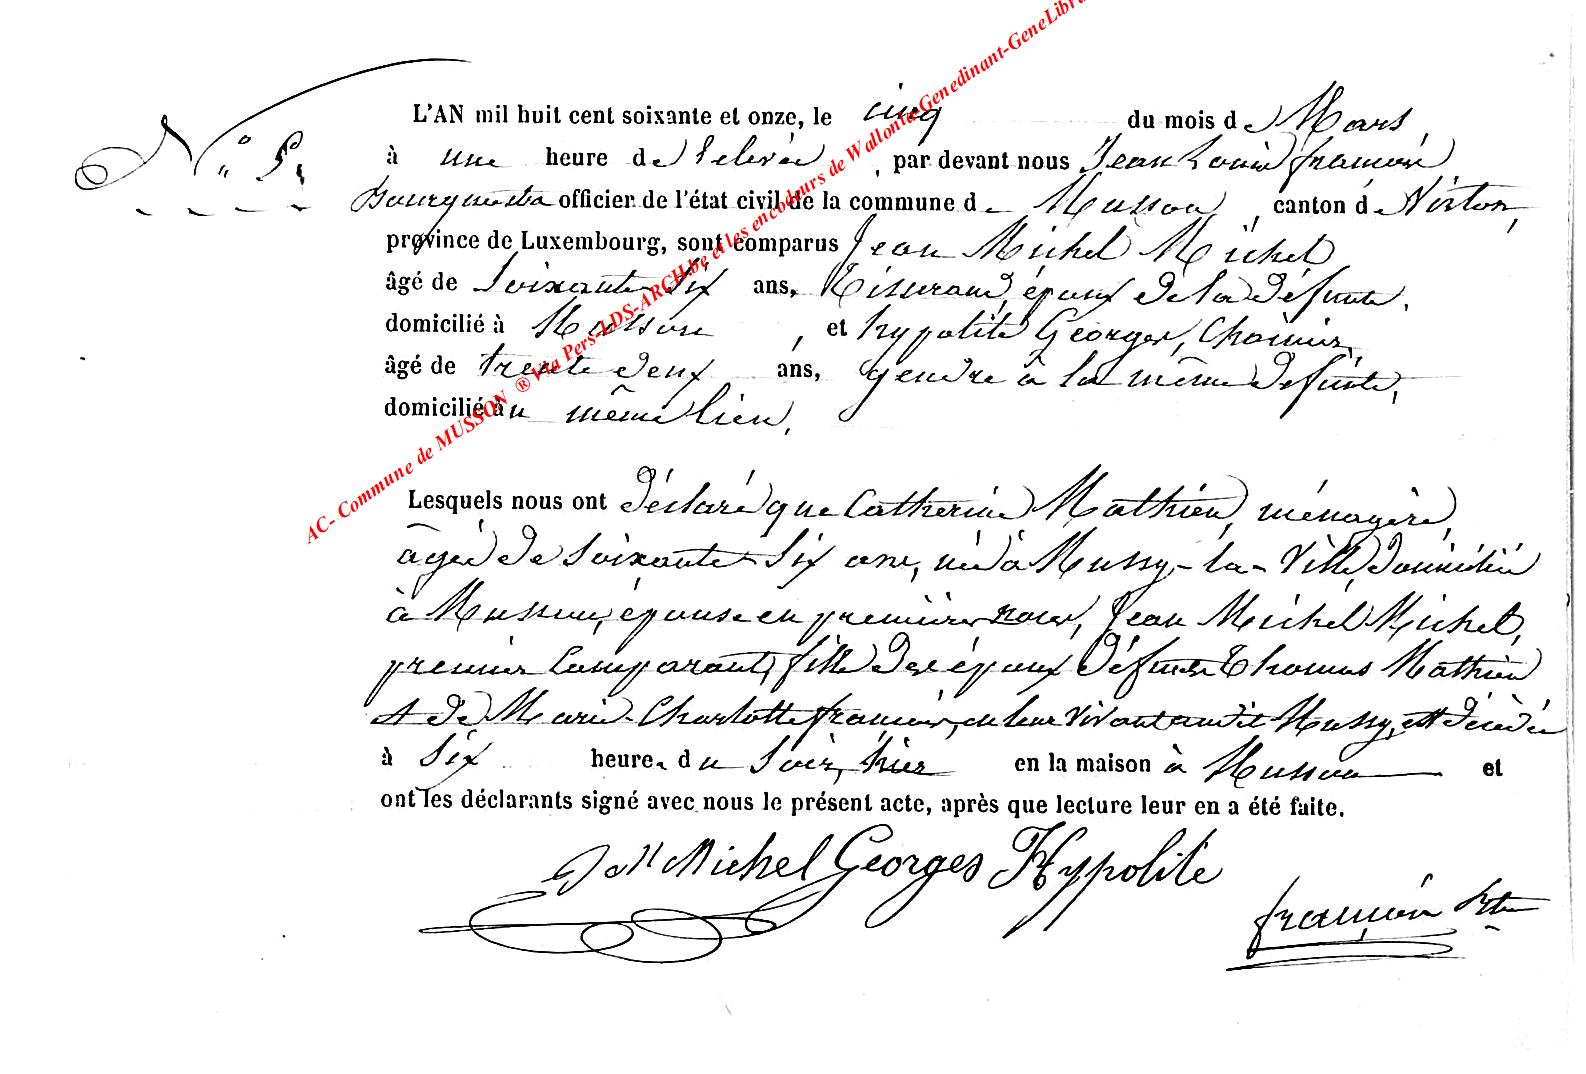 N.° 5.
L'AN mil huit cent soixante et onze, le cinq du mois de Mars,
à une heure de relevée, par devant nous Jean Louis françois
Bourgmestre officier de l'état civil de la commune de Musson, canton de Virton,
province de Luxembourg, sont comparus Jean Michel Michel
âgé de Soixante Six ans, Tisserand, époux de la défunte,
domicilié à Musson, et hypolite Georges,
âgé de trente deux ans, gendre à la même défunte,
domicilié au même lieu,
Lesquels nous ont déclaré que Catherine Mathieu, ménagère,
âgée de Soixante Six ans, née à Mussy-la-Ville, domiciliée
à Musson, épouse en premières noces, Jean Michel Michel,
premier Comparant, fille des époux défunts Thomas Mathieu
et de Marie-Charlotte françois, en leur vivant audit Mussy, est décédée
à Six heures du Soir, hier en la maison à Musson et
ont les déclarants signé avec nous le présent acte, après que lecture leur en a été faite.
J M Michel Georges Hypolite
françois
AC- Commune de MUSSON ® Via Pers-LDS-ARCH.be et les encodeurs de Wallonia-Genedinant-GeneLibra